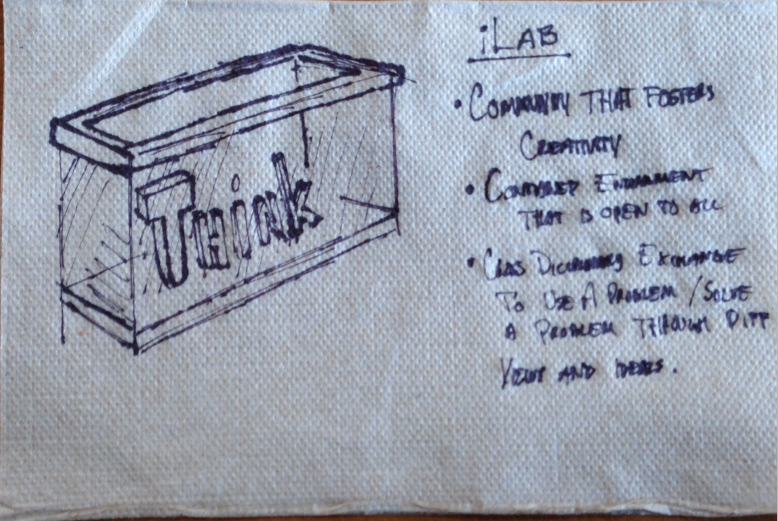 Think
iLAB
• COMMUNITY THAT FOSTERS
CREATIVITY
• CONTAINED ENVIRONMENT
THAT IS OPEN TO ALL
• CROSS DISCIPLINARY EXCHANGE
TO USE A PROBLEM / SOLVE
A PROBLEM THROUGH DIFF
VIEWS AND IDEAS.